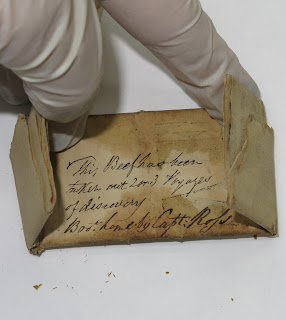 This Beef has been
taken out 2 or 3 Voyages
of discovery
Bro.t home by Capt: Ross